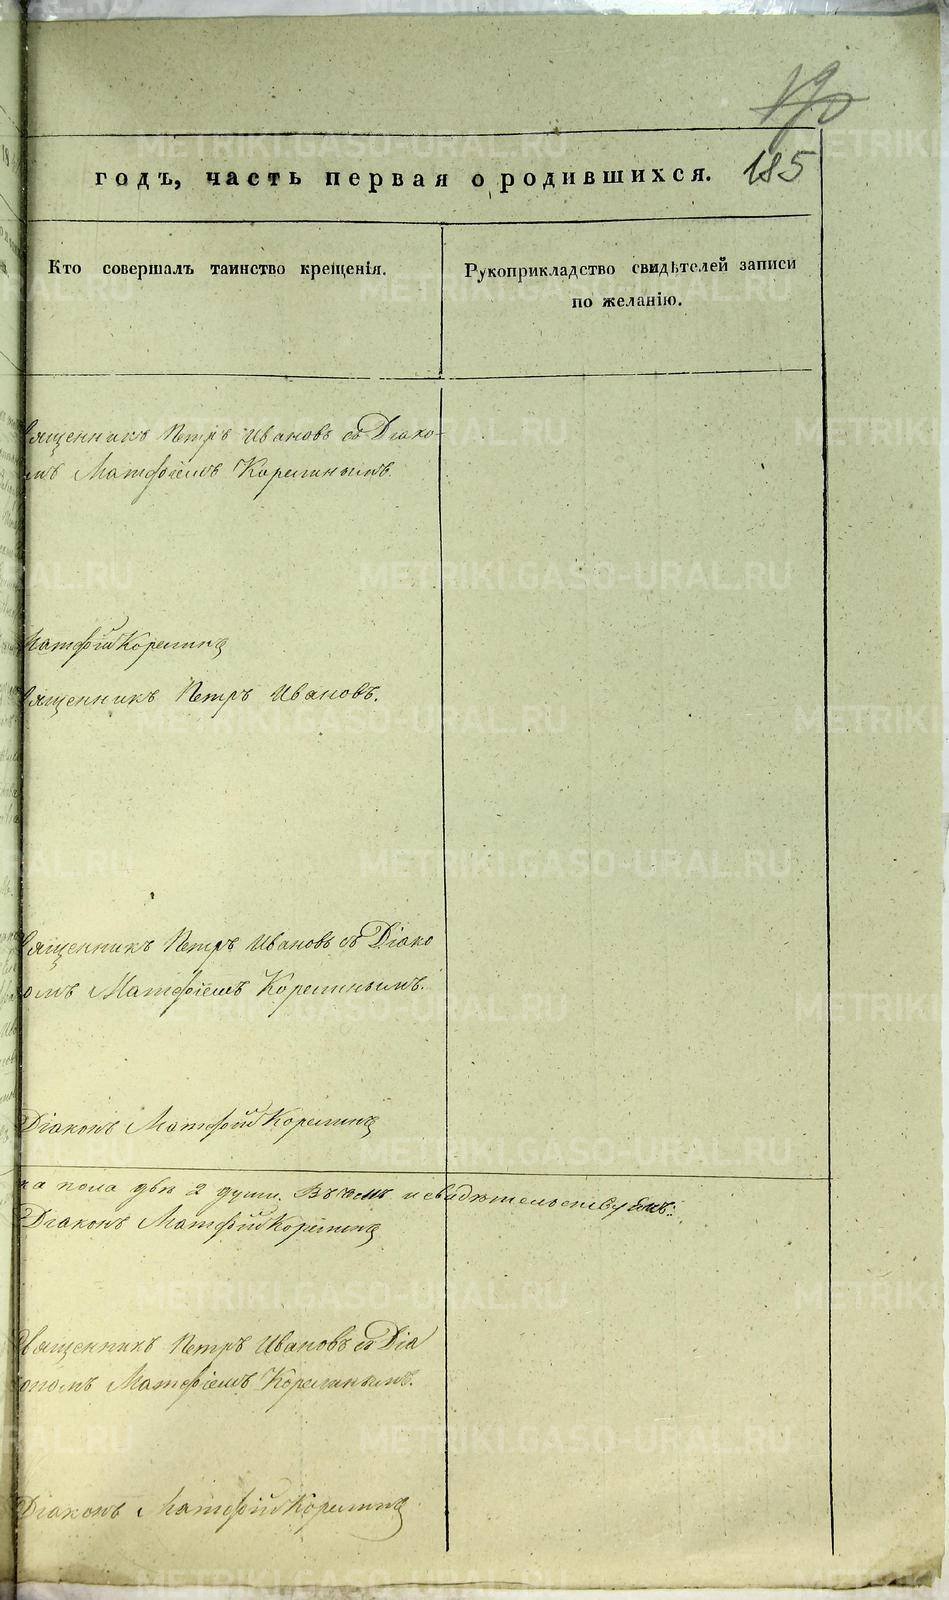 190
годъ, часть первая о родившихся. 185
Кто совершалъ таинство крещенія.
Рукоприкладство свидѣтелей записи
по желанію.
вященникъ Петръ Ивановъ съ Діако-
мъ Матфіемъ Корелинымъ.
Матфій Корелинъ
вященникъ Петръ Ивановъ.
вященникъ Петръ Ивановъ съ Діако
омъ Матфіемъ Корелинымъ.
Діаконъ Матфій Корелинъ
ка пола двѣ 2 души. Въ чемъ и свидѣтельствуемъ:
Діаконъ Матфій Корелинъ
Священникъ Петръ Ивановъ съ Діа
кономъ Матфіемъ Корелинымъ.
Діаконъ Матфій Корелинъ
METRIKI.GASO-URAL.RU